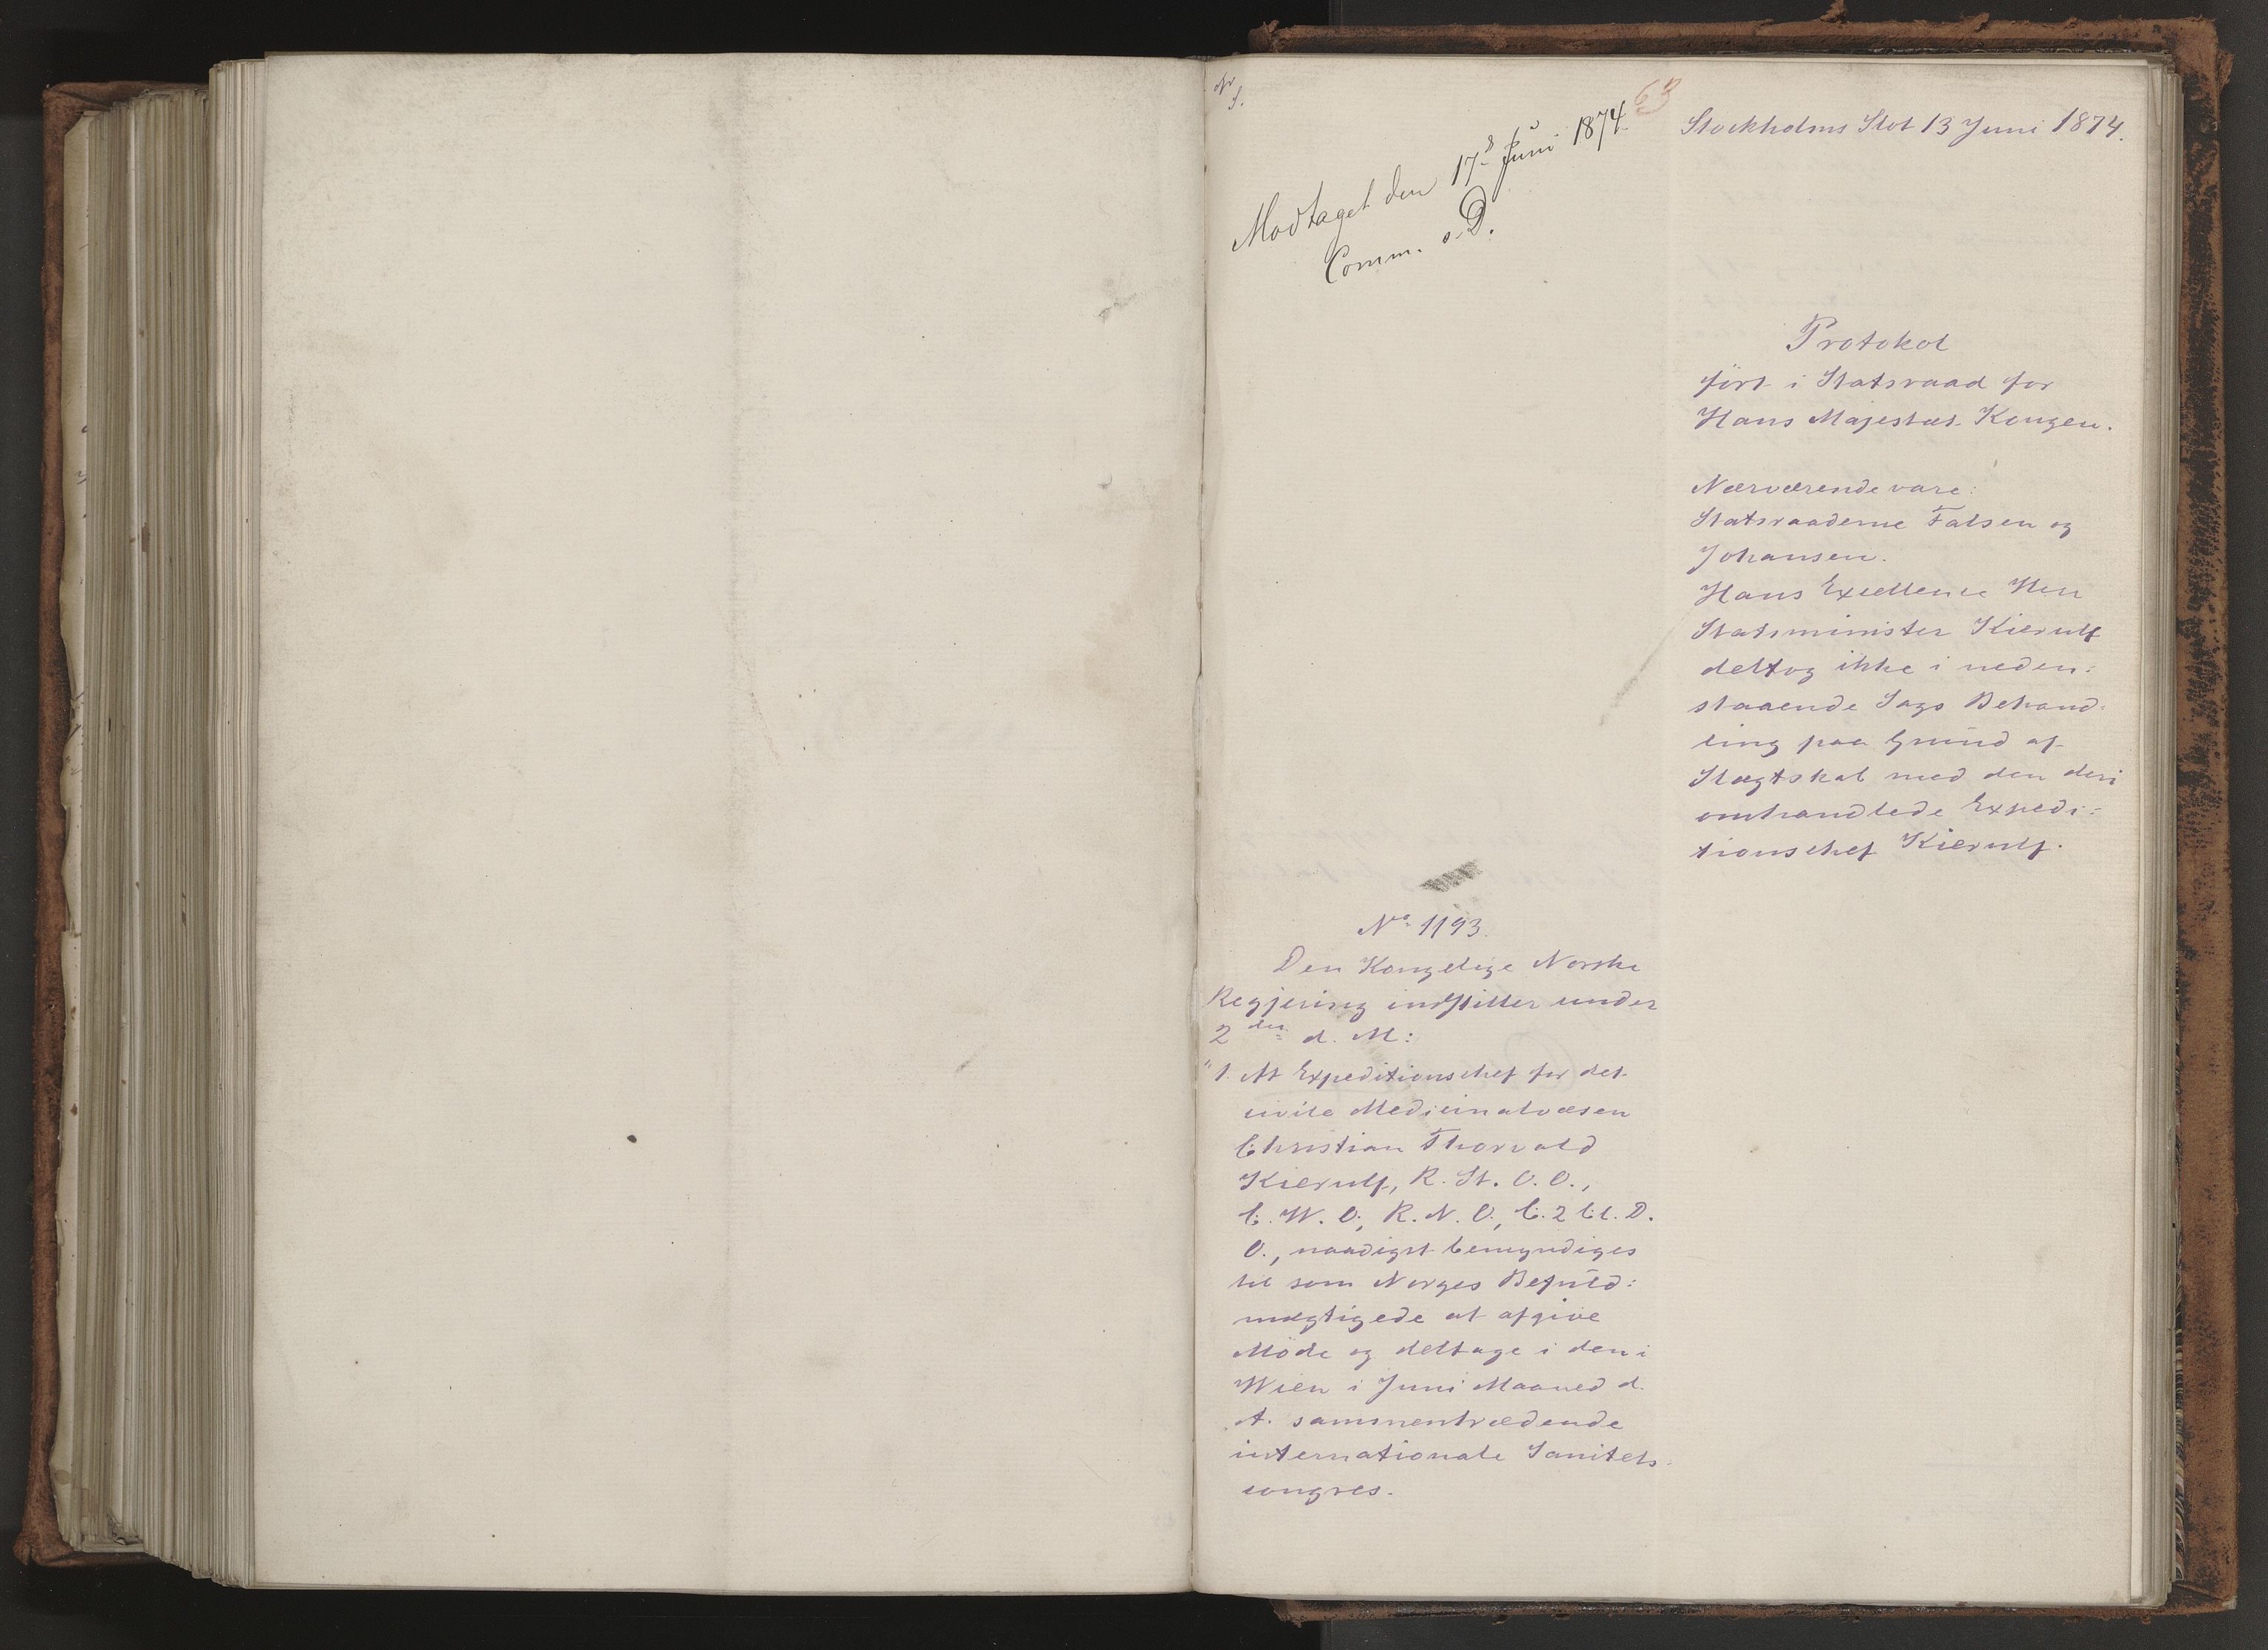 63
Stockholms Slot 13 Juni 1874.
Modtaget den 17d Juni 1874
Comm. s. D.
Protokol
ført i Statsraad for
Hans Majestæt Kongen.
Nærværende vare:
Statsraaderne Falsen og
Johansen.
Hans Excellence Herr
Statsminister Kierulf
deltog ikke i neden:
staaende Sags Behand:
ling paa Grund af
Slægtskab med den deri
omhandlede Expedi:
tionschef Kierulf.
No 1193.
Den Kongelige Norske
Regjering indstiller under
2den d. M:
"1. At Expeditionschef for det
civile Medicinalvæsen
Christian Thorvald
Kierulf, R. St. O. O.,
C. W. O., R. N. O., C. 2 Cl. D.
O., naadigst bemyndiges
til som Norges Befuld:
mægtigede at afgive
Møde og deltage i den i
Wien i Juni Maaned d.
A. sammentrædende
internationale Sanitets:
congres.